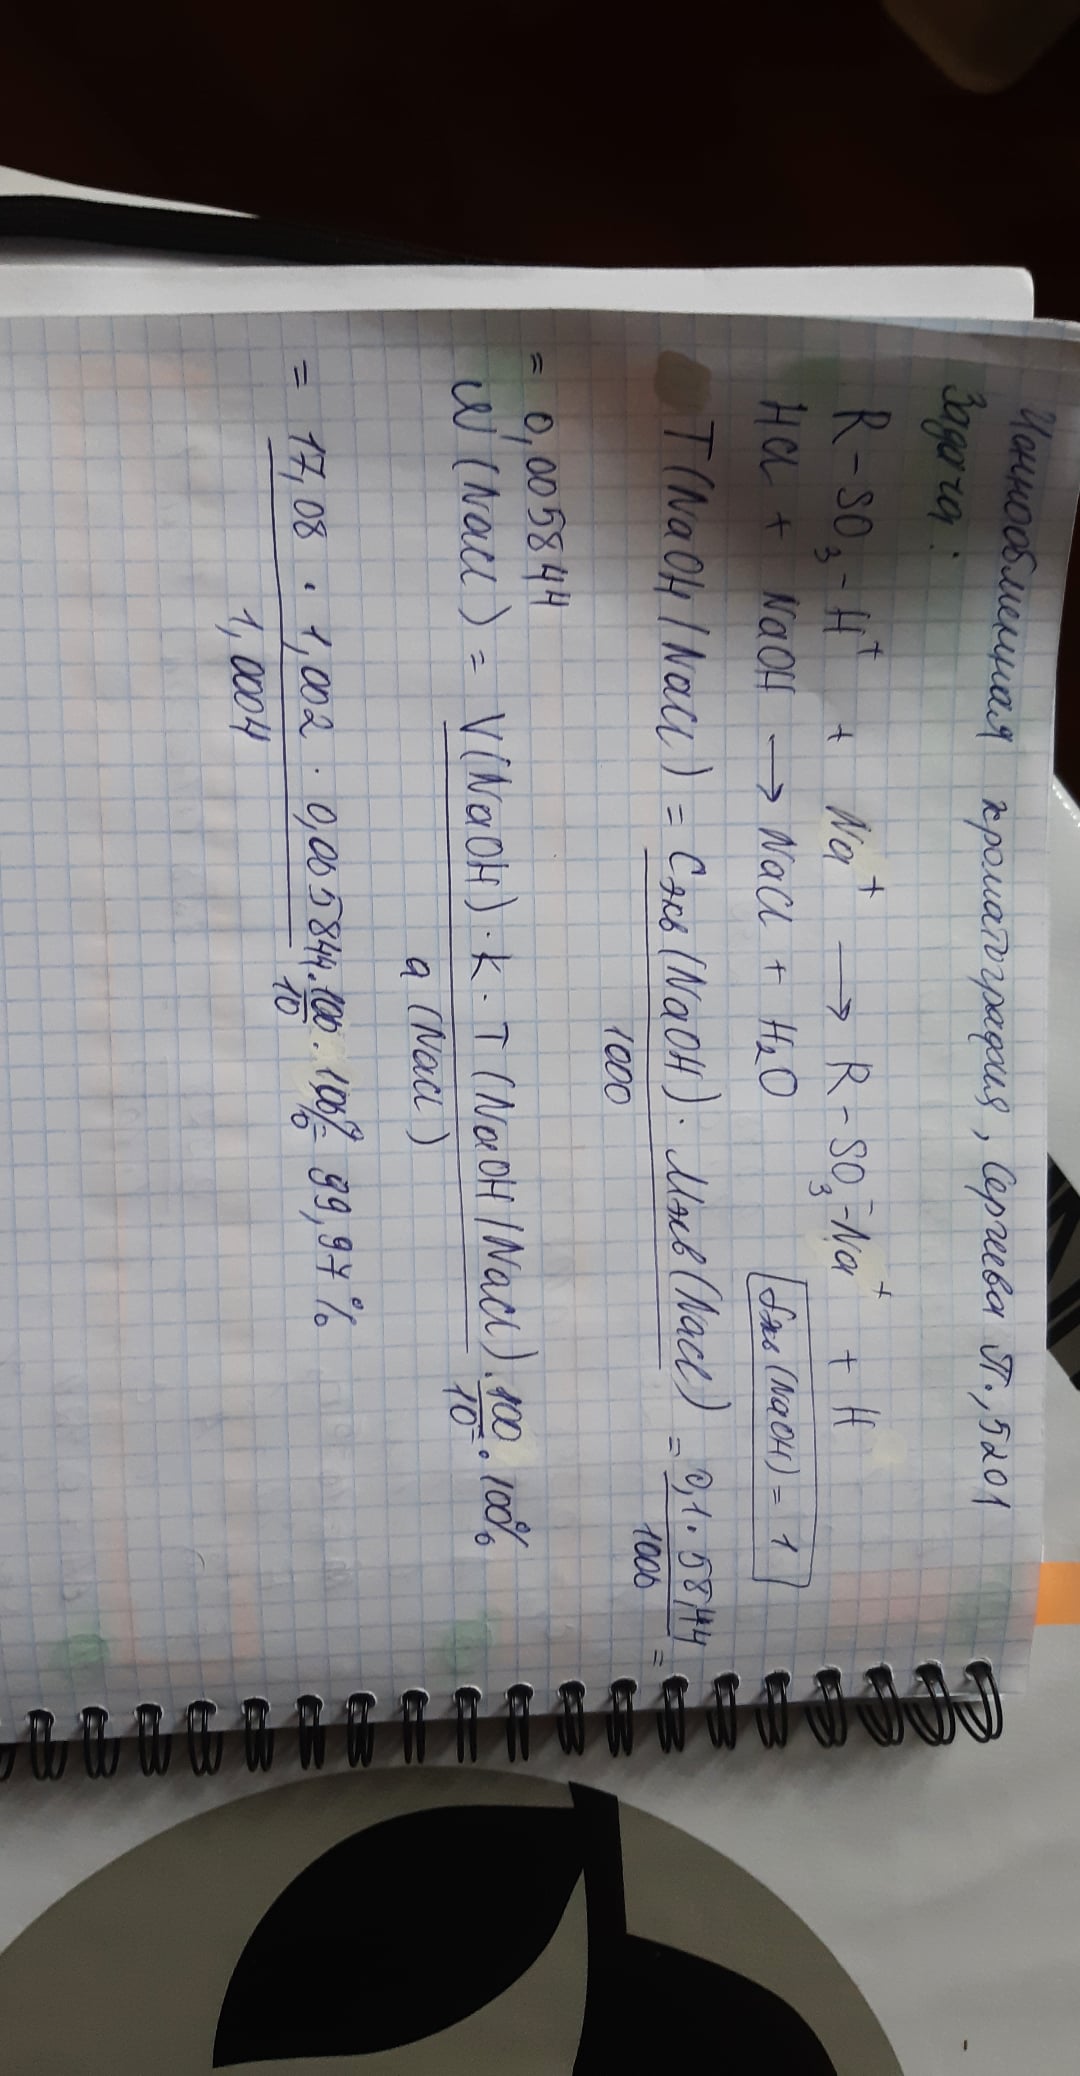 Ионнообменная хроматография, Сергеева П., 5201
Задача:
R-SO₃-H⁺ + Na⁺ → R-SO₃⁻Na⁺ + H
HCl + NaOH → NaCl + H₂O
fэкв(NaOH) = 1
T(NaOH/NaCl) = Cэкв(NaOH)·Mэкв(NaCl) / 1000 = 0,1·58,44 / 1000 =
= 0,005844
W(NaCl) = V(NaOH)·k·T(NaOH/NaCl) / a(NaCl) · 100/10 · 100% =
= 17,08 · 1,002 · 0,005844 / 1,0004 · 100/10 · 100% = 99,97%